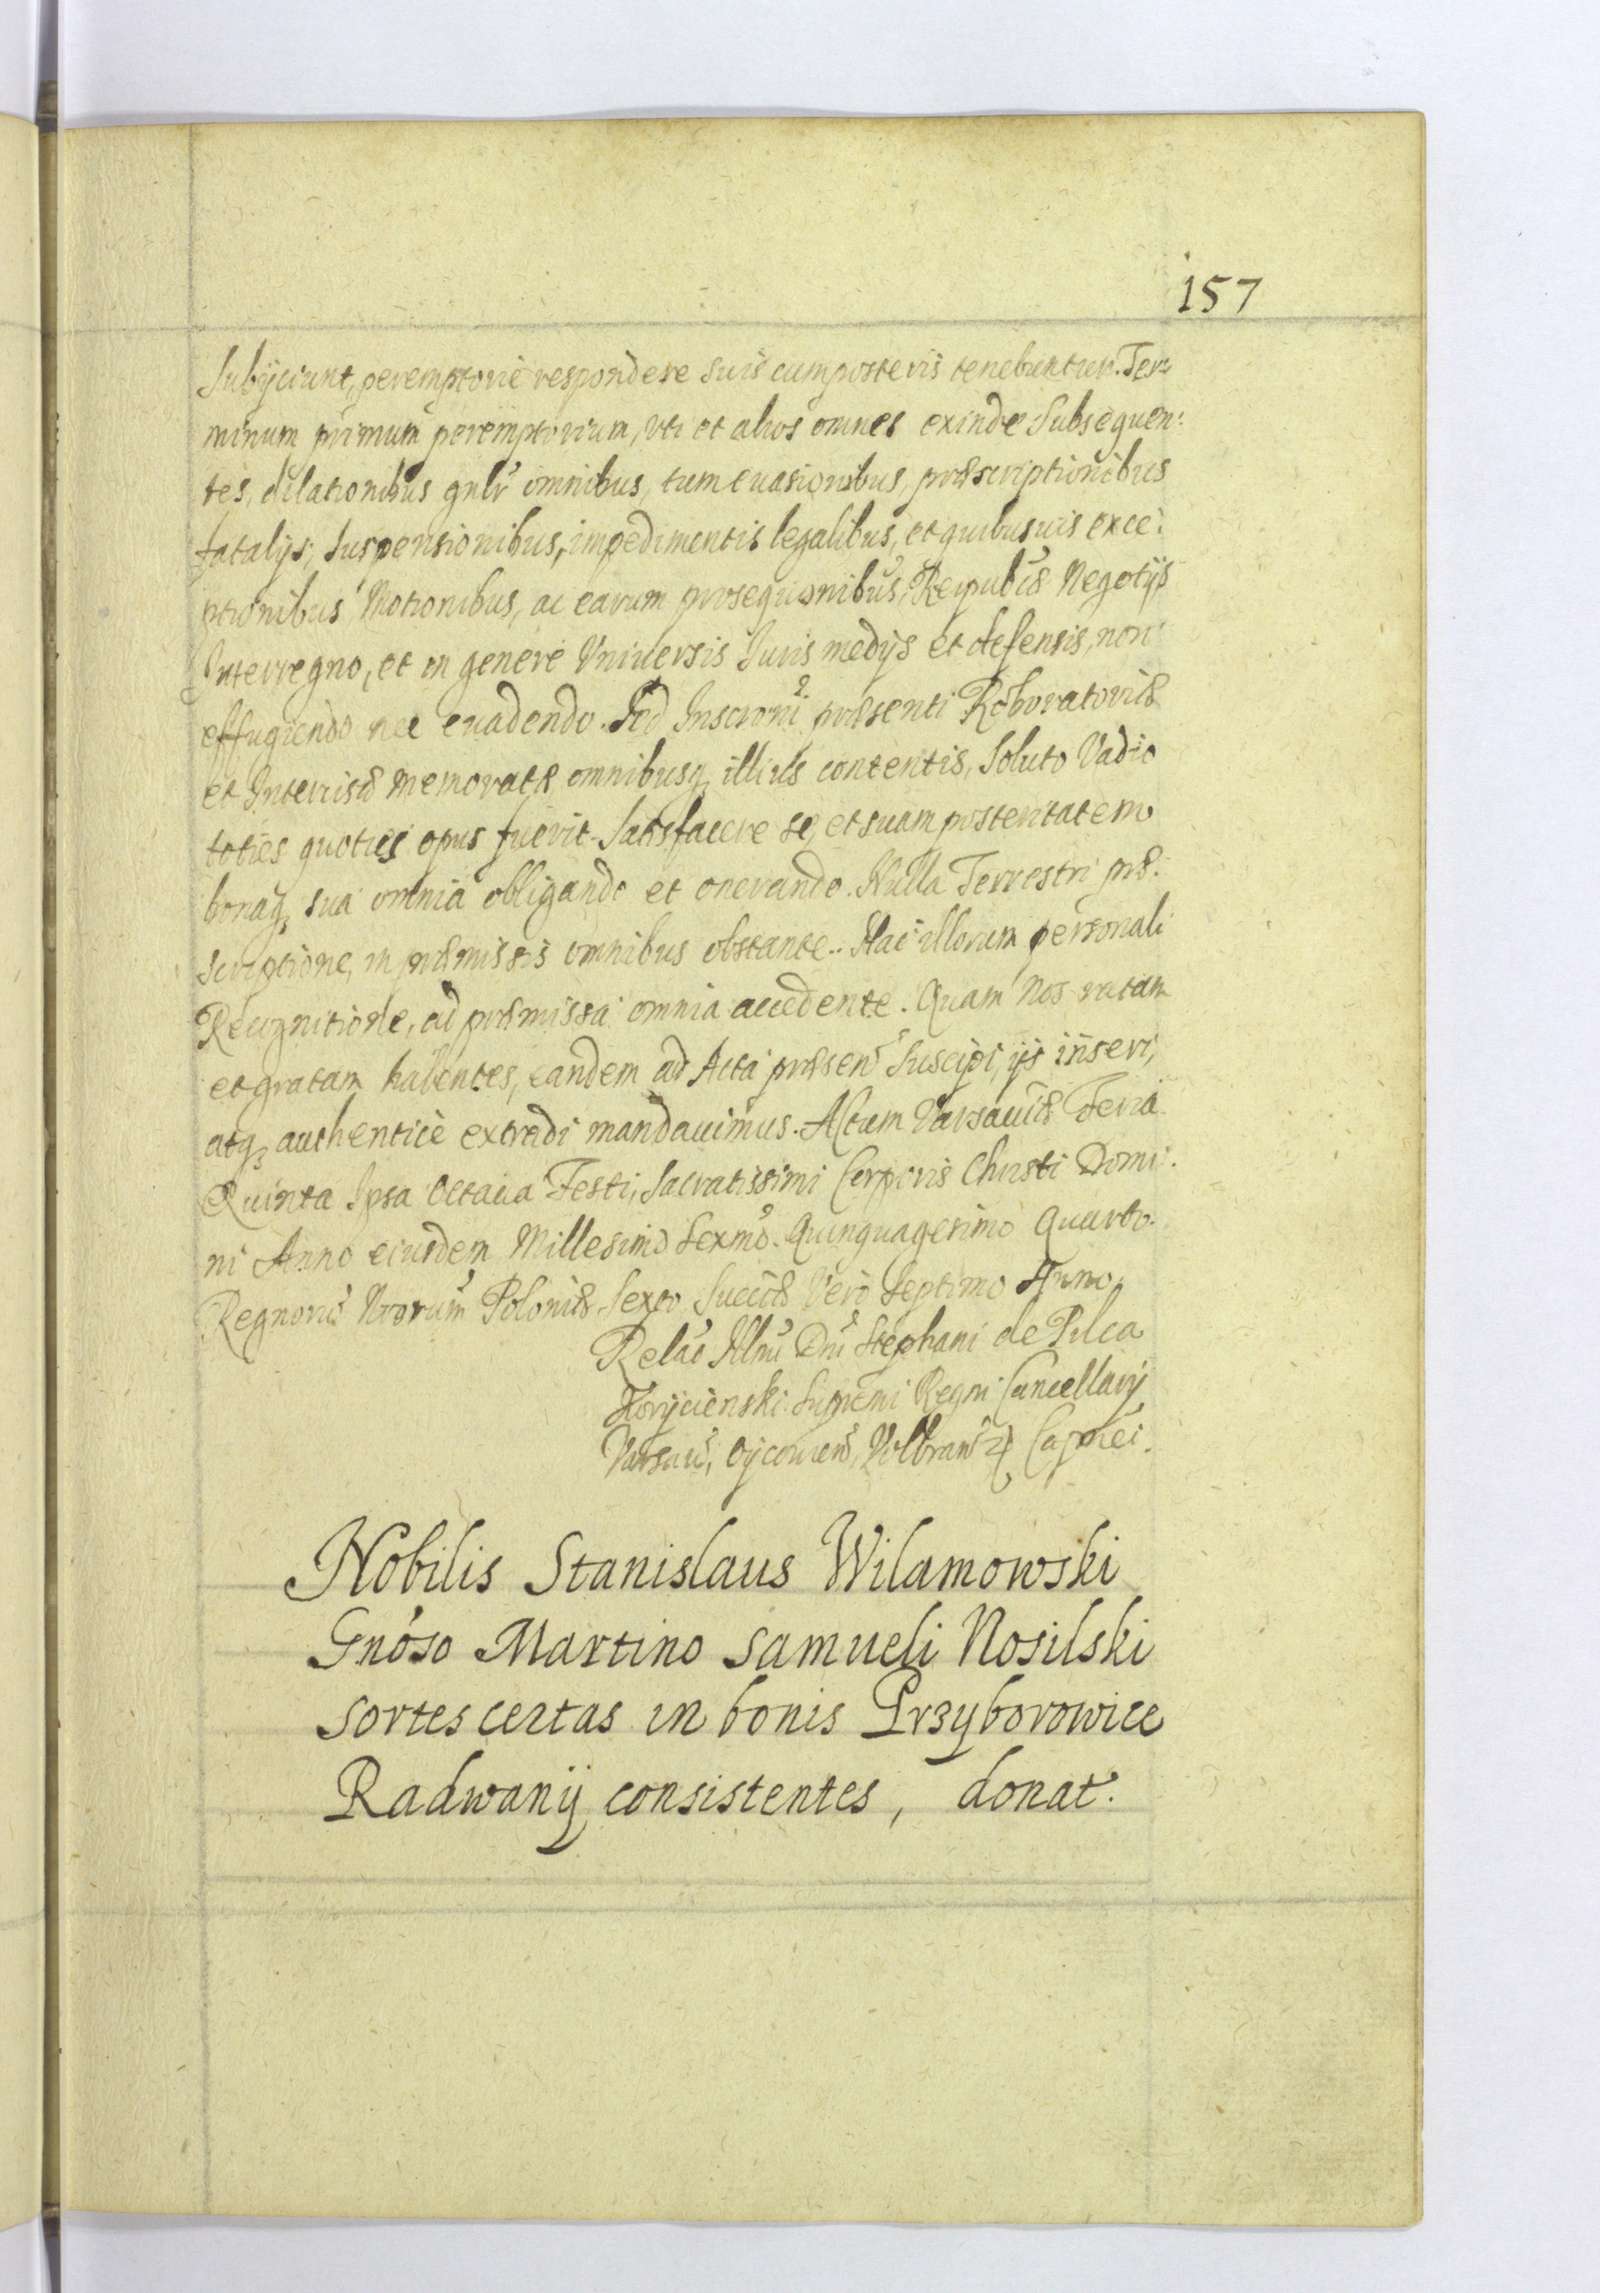 157
Subijciunt, peremptorie respondere suis cum posteris tenebuntur. Ter=
minum primum peremptorium, uti et alios omnes exinde Subsequen:
tes, dilationibus gnlr omnibus, tum evasionibus, præscriptionibus
fatalijs, suspensionibus, impedimentis legalibus, et quibusuis exce:
ptionibus Motionibus, ac earum prosequonibus, Reipublcæ Negotijs
Interregno, et in genere Vniuersis Iuris medijs et defensis, non
effugiendo nec euadendo. Sed Inscrioni præsenti Roboratoriæ
et Intercisæ memoratæ omnibusq illius contentis, soluto Vadio
toties quoties opus fuerit Satisfacere se, et suam posteritatem
bonaq sua omnia obligando et onerando. Nulla Terrestri præ:
scriptione, in præmissis omnibus obstante. Hac illorum personali
Recognitione, ad præmissa omnia accedente. Quam Nos ratam
et gratam habentes, eandem ad Acta præsen Suscipi, ijs inseri,
atq authenticè extradi mandauimus. Actum Varsauiæ Feria
Quinta Ipsa Octaua Festi, Sacratissimi Corporis Christi Domi:
ni Anno eiusdem Millesimo Sexmo. Quinquagesimo Quarto.
Regnoru Nrorum Poloniæ Sexto Sueciæ Vero Septimo Anno
Relao Illmi Dni Stephani de Pilca
Korycienski Supremi Regni Cancellarij
Varsau, Ojcouien, Volbram Capnei.
Nobilis Stanislaus Wilamowski
Gnóso Martino Samueli Nosilski
sortes certas in bonis Przyborowice
Radwanij consistentes, donat.